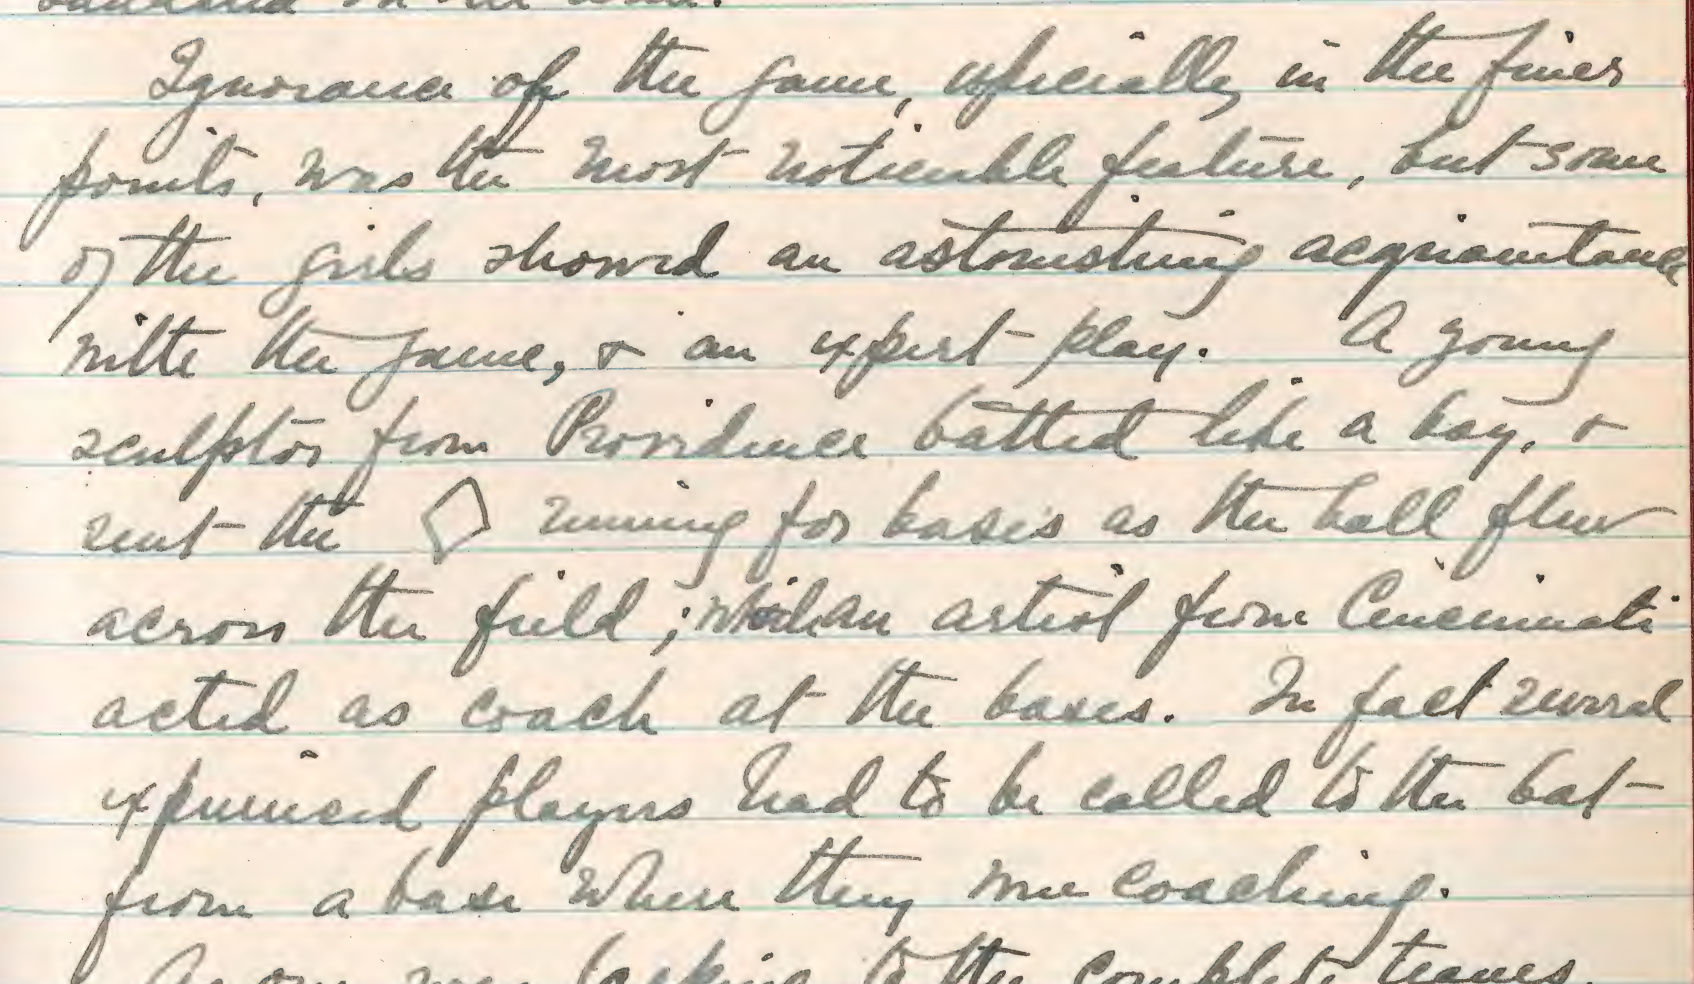 Ignorance of the game, especially in the finer
points, was the most noticeable feature, but some
of the girls showed an astonishing acquaintance
with the game, & an expert play. A young
sculptor from Providence batted like a boy, &
sent the running for bases as the ball flew
across the field; while an artist from Cincinnati
acted as coach at the bases. In fact several
experienced players had to be called to the bat
from a base where they were coaching.
As one was lacking to the complete teams,